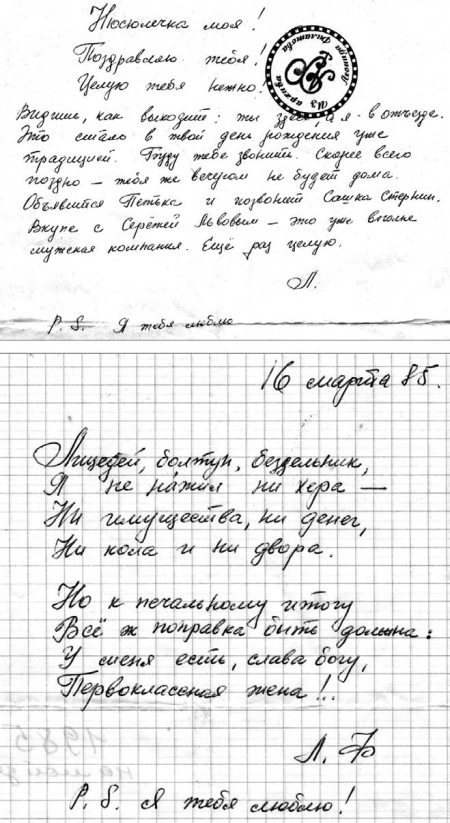 Нюсюлечка моя!
Поздравляю тебя!
Целую тебя нежно!
Из архива Леонида Филатова
Видишь, как выходит: ты здесь, а я - в отъезде.
Это стало в твой день рождения уже
традицией. Буду тебе звонить. Скорее всего
поздно – тебя же вечером не будет дома.
Объявится Петька и позвонит Сашка Стернин.
Вкупе с Серёжей Львовым – это уже вполне
мужская компания. Ещё раз целую.
Л.
P.S. Я тебя люблю
16 марта 85.
Лицедей, болтун, бездельник,
Я не нажил ни хера —
Ни имущества, ни денег,
Ни кола и ни двора.
Но к печальному итогу
Всё ж поправка быть должна:
У меня есть, слава богу,
Первоклассная жена!..
Л. Ф
P.S. Я тебя люблю!
1985